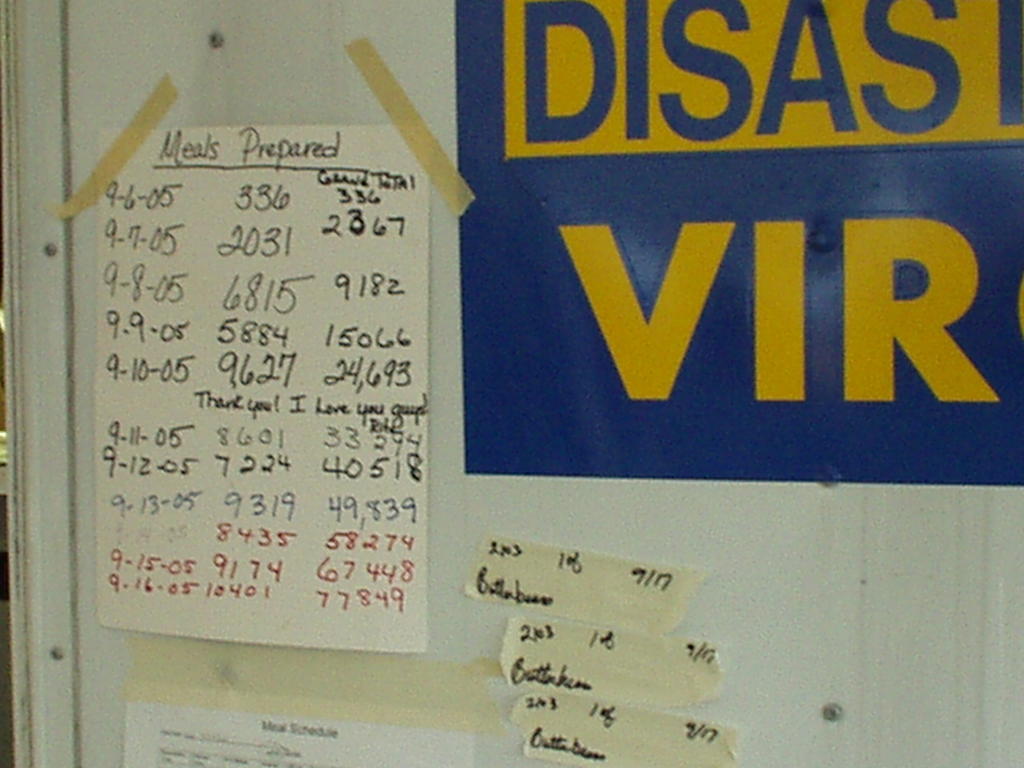 Meals Prepared
Grand Total
9-6-05 336 336
9-7-05 2031 2367
9-8-05 6815 9182
9-9-05 5884 15066
9-10-05 9,627 24,693
Thank you! I Love you guys!
9-11-05 8601 33294
9-12-05 7224 40518
9-13-05 9319 49,839
9-14-05 8435 58274
9-15-05 9174 67448
9-16-05 10401 77849
DISAST
VIR
2103 1of 9/17
Butterbeans
2103 1of 9/17
Butterbeans
2103 1of 9/17
Butterbeans
Meal Schedule